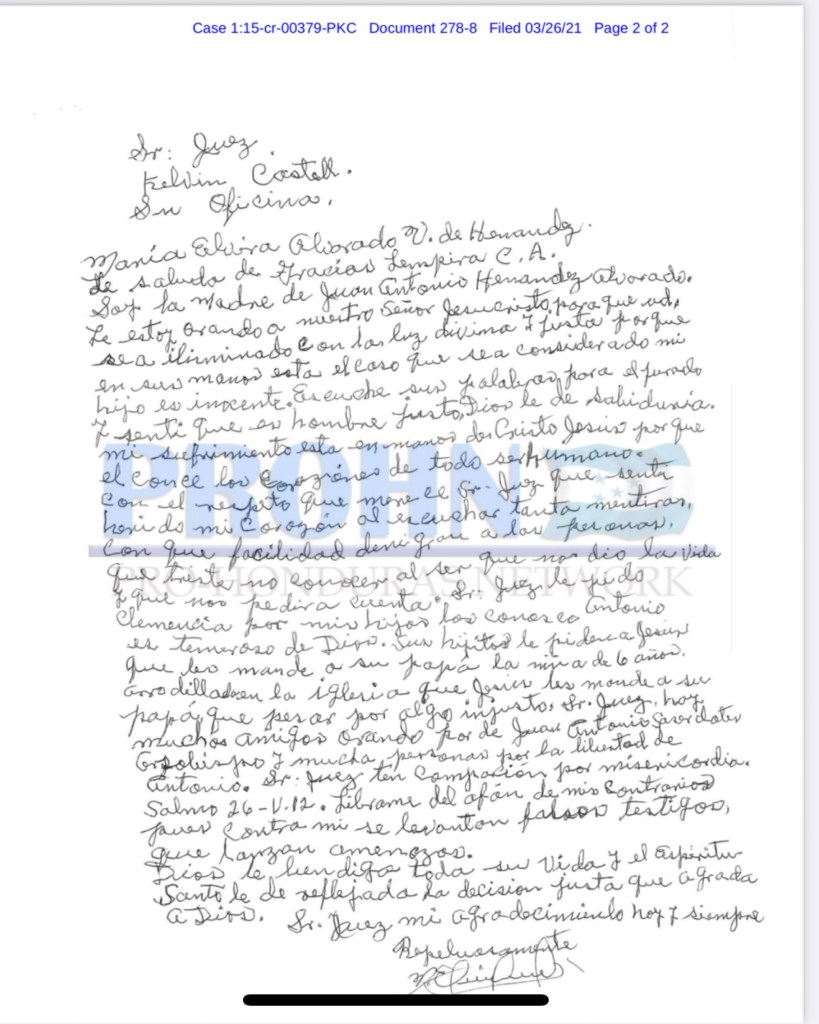 Case 1:15-cr-00379-PKC Document 278-8 Filed 03/26/21 Page 2 of 2
Sr: Juez.
Kelvin Castell.
Su Oficina.
Maria Elvira Alvarado V. de Henandez.
Le saluda de Gracias Lempira C.A.
Soy la Madre de Juan Antonio Henandez Alvarado.
Le estoy orando a nuestro Señor Jesucristo, para que ud.
sea iliminado con la luz divina y justa porque
en sus manos esta el caso que sea considerado mi
hijo es inocente. Escuche sus palabras para el jurado
y senti que es hombre justo, Dios le de sabiduria.
mi sufrimiento esta en manos de Cristo Jesus porque
el conce los Corazónes de todo ser humano.
Con el respeto que merece Sr. Juez que senti
herido mi Corazón al escuchar tanta mentiras,
Con que facilidad denigran a las personas.
que triste no conocer al ser que nos dio la vida
y que nos pedira cuenta. Sr. Juez le pido
Clemencia por mis hijos los conosco Antonio
es temeroso de Dios. Sus hijitos le piden a Jesus
que les mande a su papá la niña de 6 años.
arrodillada en la iglesia que Jesus les mande a su
papá, que pesar por algo injusto. Sr. Juez, hay
muchos amigos orando por de Juan Antonio Sacerdotes
y mucha personas por la libertad de
Antonio. Sr: Juez ten Compasión por misericordia.
Salmo 26-V.12. Librame del afán de mis Contrarios
pues contra mi se levantan falsos testigos,
que lanzan amenazas.
Dios le bendiga toda su vida y el Espiritu
Santo le de reflejada la decision justa que agrada
a Dios. Sr. Juez mi agradecimiento hoy y siempre
PROHN
PRO HONDURAS NETWORK